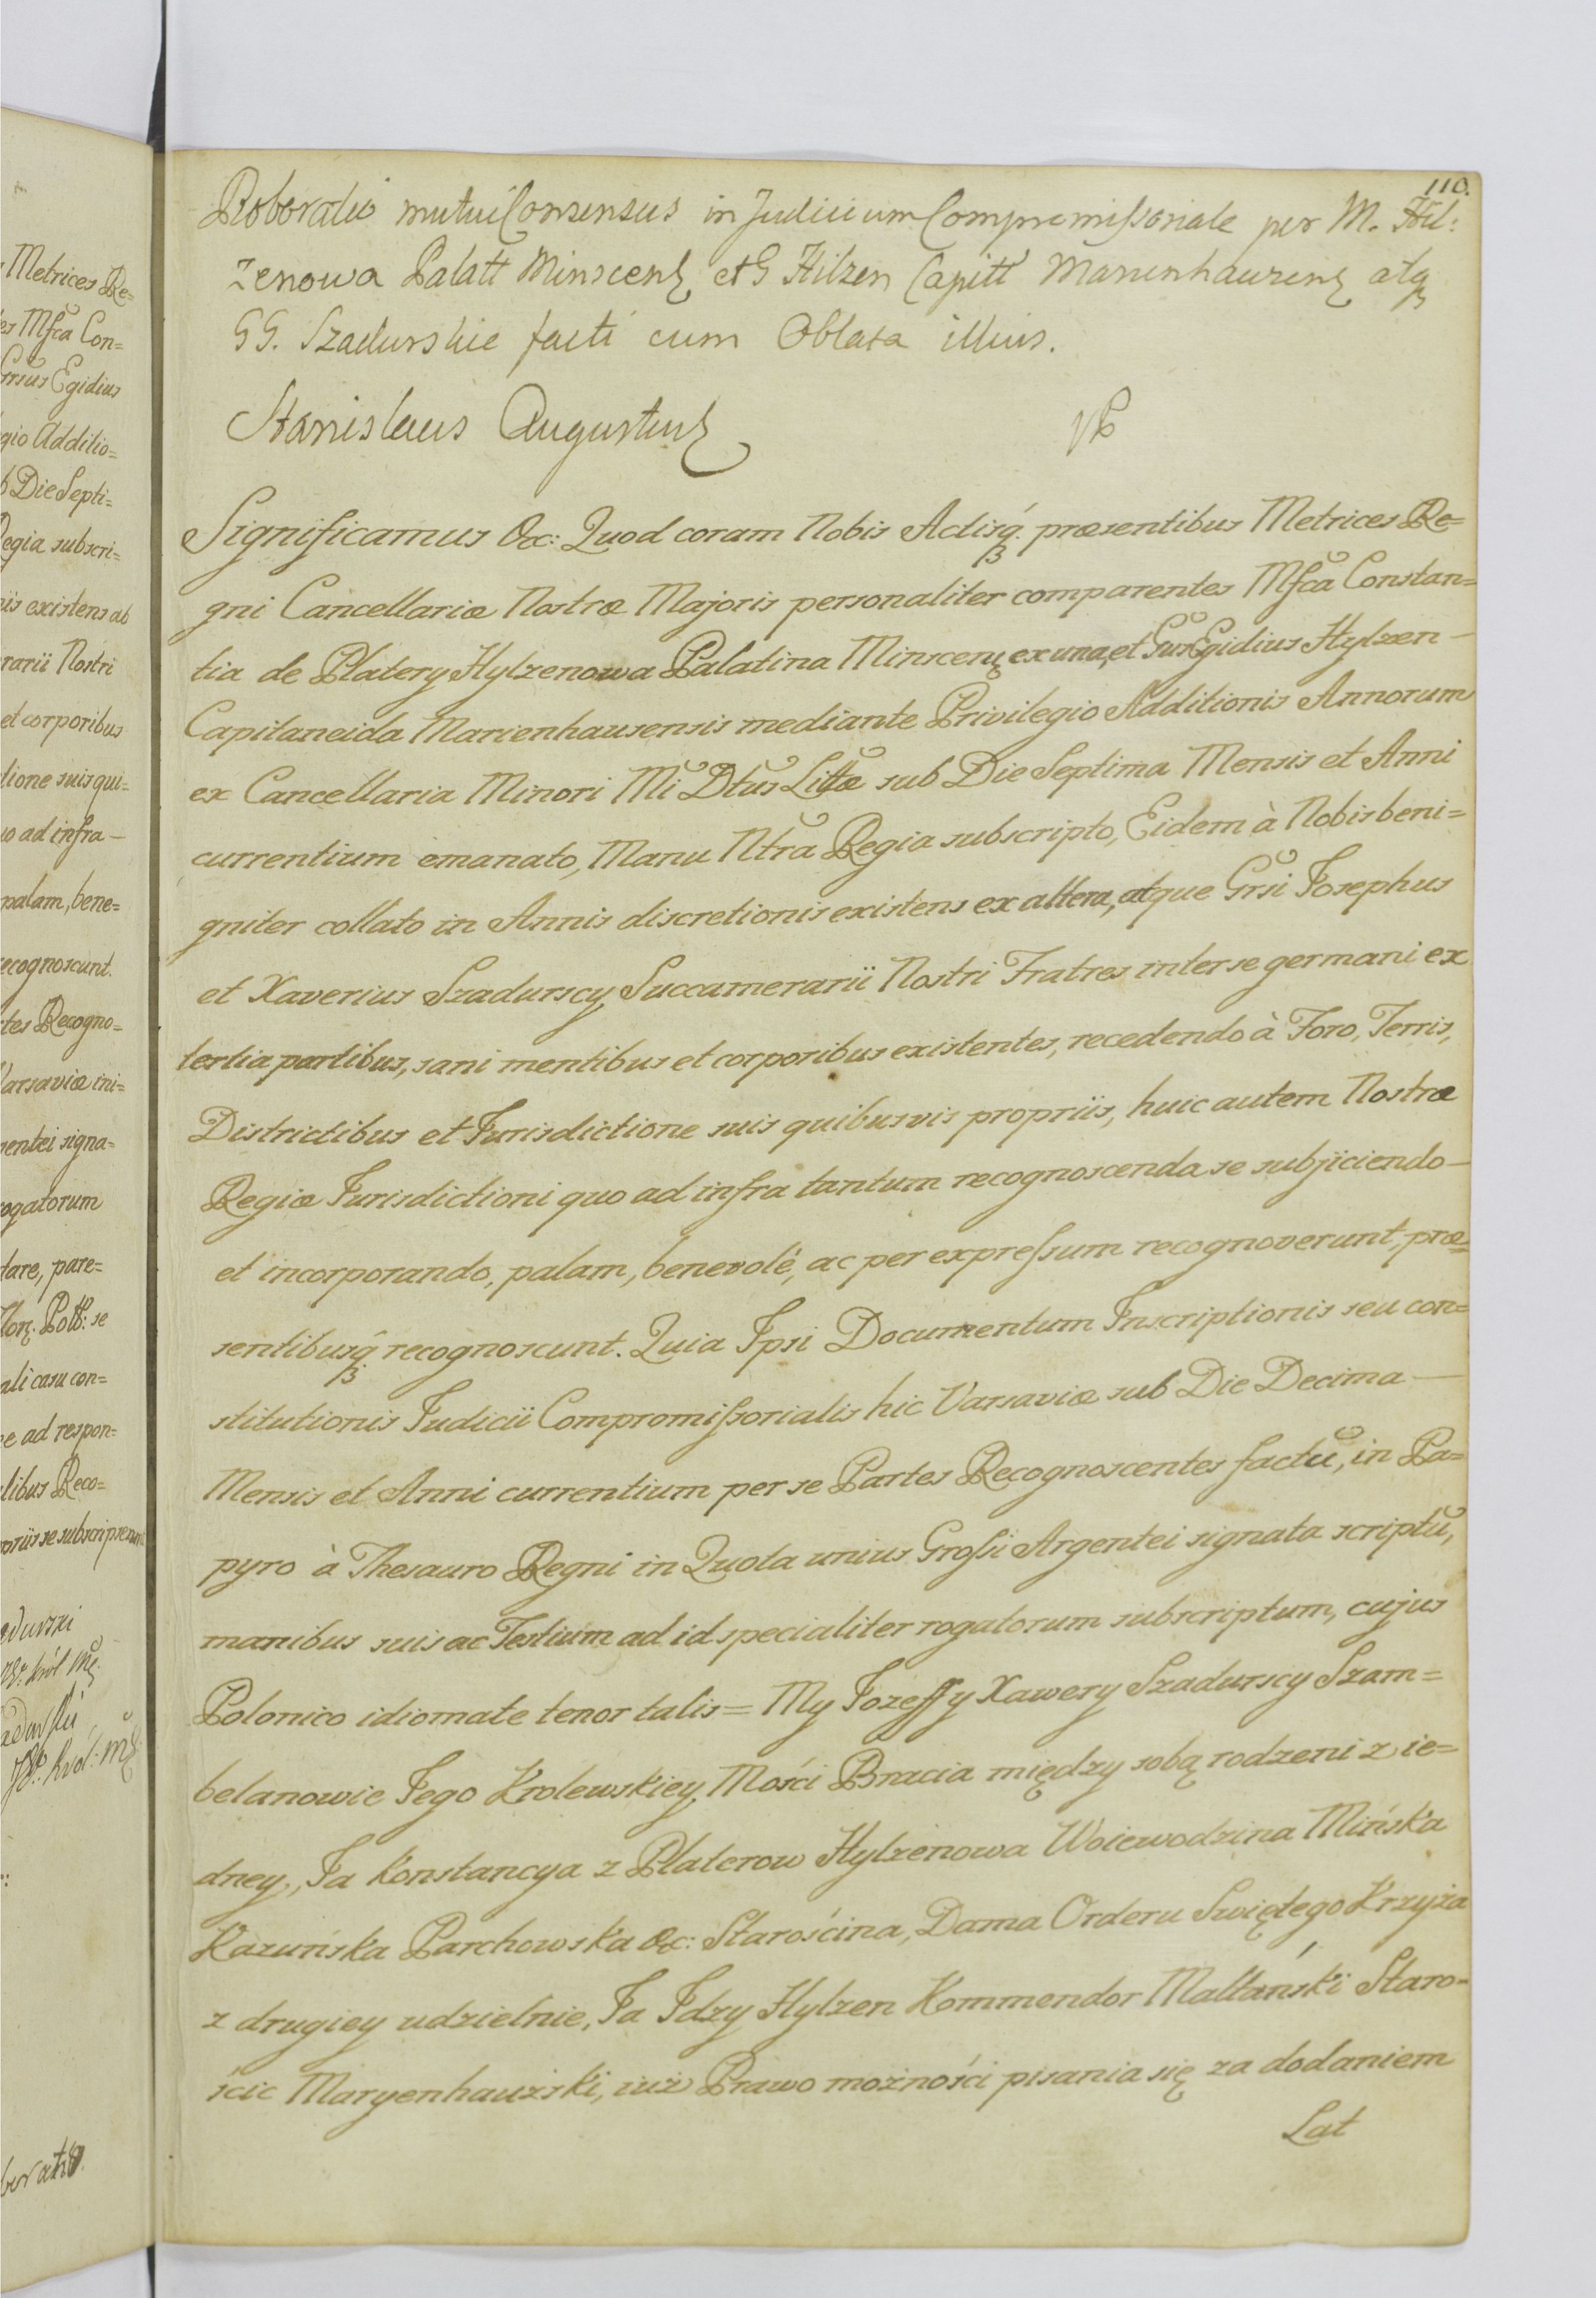 Metrices Re=
es Mfca Con=
Grsus Egidius
gio Additio=
b Die Septi=
Regia subscri=
nis existens ab
rarii Nostri
et corporibus
tione suis qui=
uo ad infra —
palam, bene=
recognoscunt.
tes Recogno=
Varsaviæ ini=
gentei signa=
rogatorum
tare, pare=
Flor. Poll: se
ali casu con=
e ad respon=
libus Reco=
priis se subscripserunt
adurski
adurski
boratio.
110.
Roboratio mutui Consensus in Judicium Compromissoriale per M. Hil:
zenowa Palatt Minscens et G Hilzen Capitt Marienhauzens atq
GG. Szadurskie facti cum Oblata illius.
Stanislaus Augustus VP
Significamus &c: Quod coram Nobis Actisq. præsentibus Metrices Re=
gni Cancellariæ Nostræ Majoris personaliter comparentes Mfca Constan=
tia de Platery Hylzenowa Palatina Minscens ex una, et Gus Egidius Hylzen —
Capitaneida Marienhausensis mediante Privilegio Additionis Annorum
ex Cancellaria Minori M̃i Dt̃us Litt̃æ sub Die Septima Mensis et Anni
currentium emanato, Manu Ntr̃a Regia subscripto, Eidem à Nobis beni=
gniter collato in Annis discretionis existens ex altera, atque Grsi Josephus
et Xaverius Szadurscy Succamerarii Nostri Fratres inter se germani ex
tertia partibus, sani mentibus et corporibus existentes, recedendo à Foro, Terris,
Districtibus et Jurisdictione suis quibusvis propriis, huic autem Nostræ
Regiæ Jurisdictioni quo ad infra tantum recognoscenda se subjiciendo —
et incorporando, palam, benevolé, ac per expressum recognoverunt, præ=
sentibusq́ recognoscunt. Quia Ipsi Documentum Inscriptionis seu con=
stitutionis Judicii Compromissorialis hic Varsaviæ sub Die Decima —
Mensis et Anni currentium per se Partes Recognoscentes factũ, in Pa=
pyro à Thesauro Regni in Quota unius Grossi Argentei signata scriptũ,
manibus suis ac Testium ad id specialiter rogatorum subscriptum, cujus
Polonico idiomate tenor talis = My Jozeff y Xawery Szadurscy Szam=
belanowie Jego Krolewskiey Mości Bracia między sobą rodzeni z ie=
dney, Ja Konstancya z Platerow Hylzenowa Woiewodzina Mińska
Kazuńska Parchowska &c: Starościna, Dama Orderu Swiętego Krzyża
z drugiey udzielnie, Ja Idzy Hylzen Kommendor Maltański Staro=
ścic Maryenhauzski, iuż Prawo możności pisania się za dodaniem
Lat